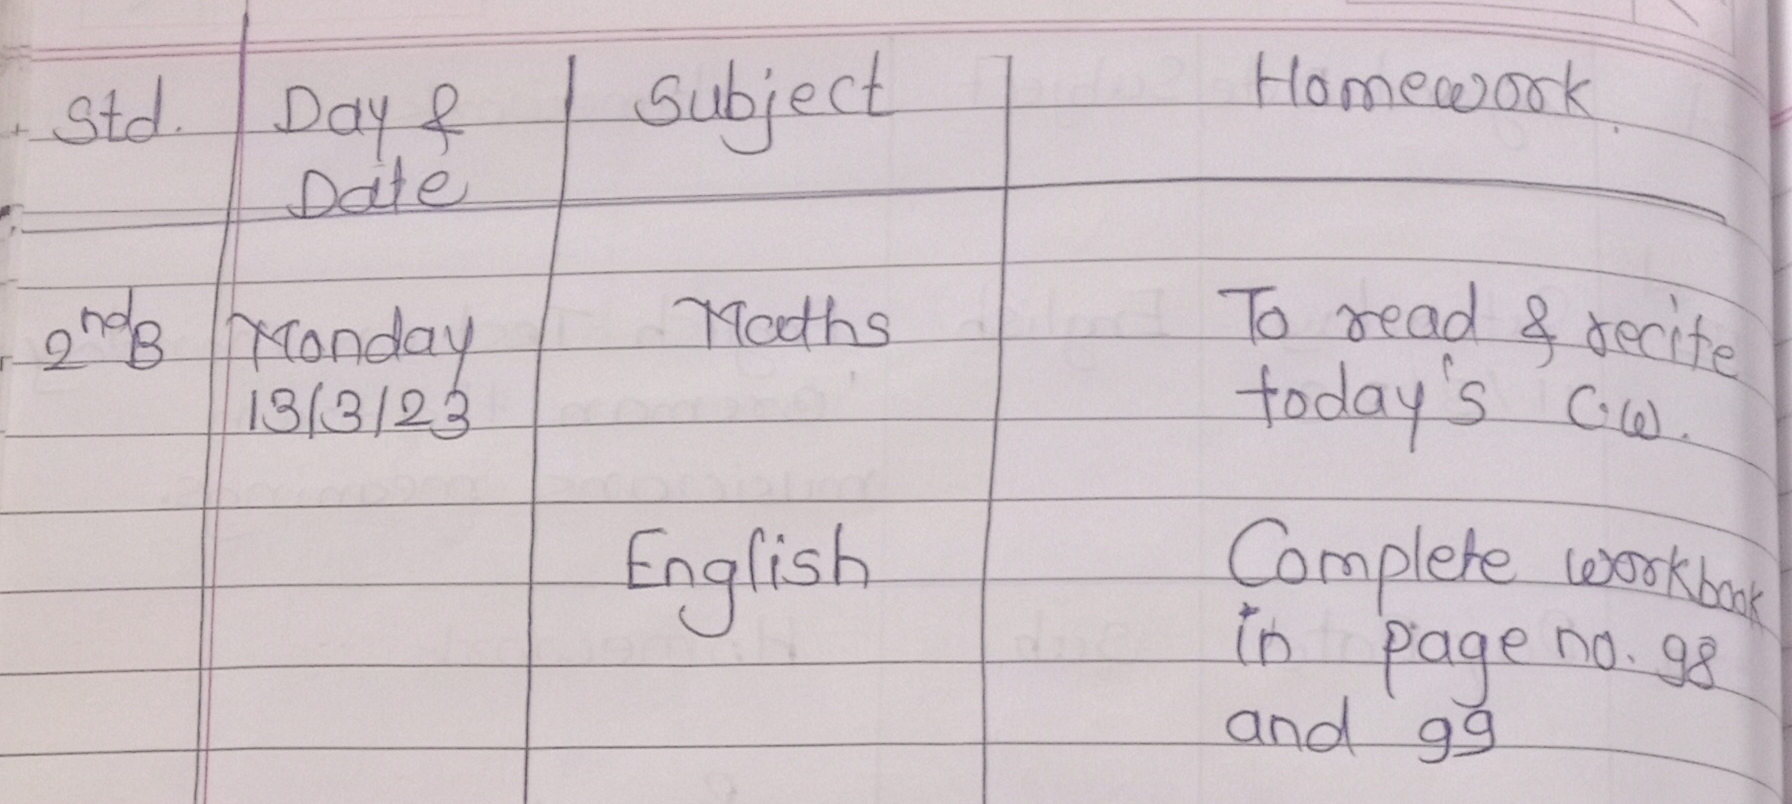 Std. Day & Subject Homework.
Date
2nd B Monday Maths To read & recite
13/3/23 today's C.W.
English Complete workbook
in page no. 98
and 99